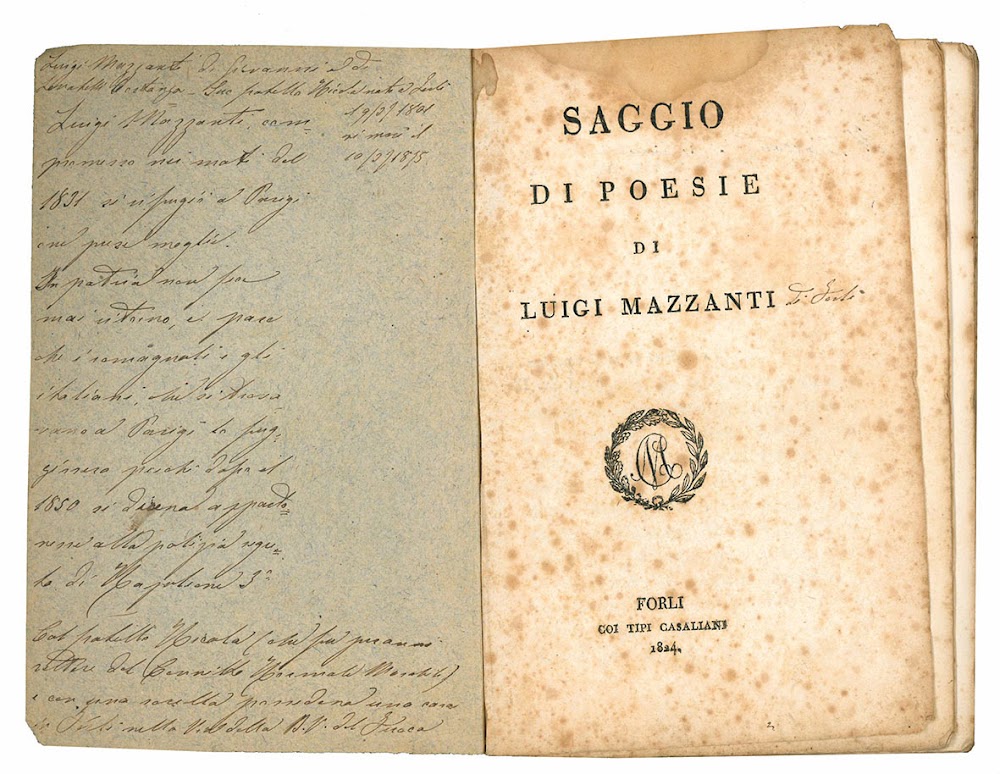 Luigi Mazzanti di Giovanni e di
Costanza - Suo fratello Nicola nato a Forlì
19/3/1801
vi morì il
10/3/1875
Luigi Mazzanti, com-
promesso nei moti del
1831 si rifugiò a Parigi
ove prese moglie.
In patria non fece
mai ritorno, e pare
che i romagnoli e gli
italiani, che si trova-
vano a Parigi lo fug-
gissero perchè dopo il
1850 si diceva apparte-
nesse alla polizia segre-
ta di Napoleone 3°
Col fratello Nicola (che fu per anni
rettore del Convitto Normale Maschile)
e con una sorella possedeva una casa
in Forlì nella Via della B. V. del Fuoco
SAGGIO
DI POESIE
DI
LUIGI MAZZANTI di Forlì
FORLI
COI TIPI CASALIANI
1824.
2